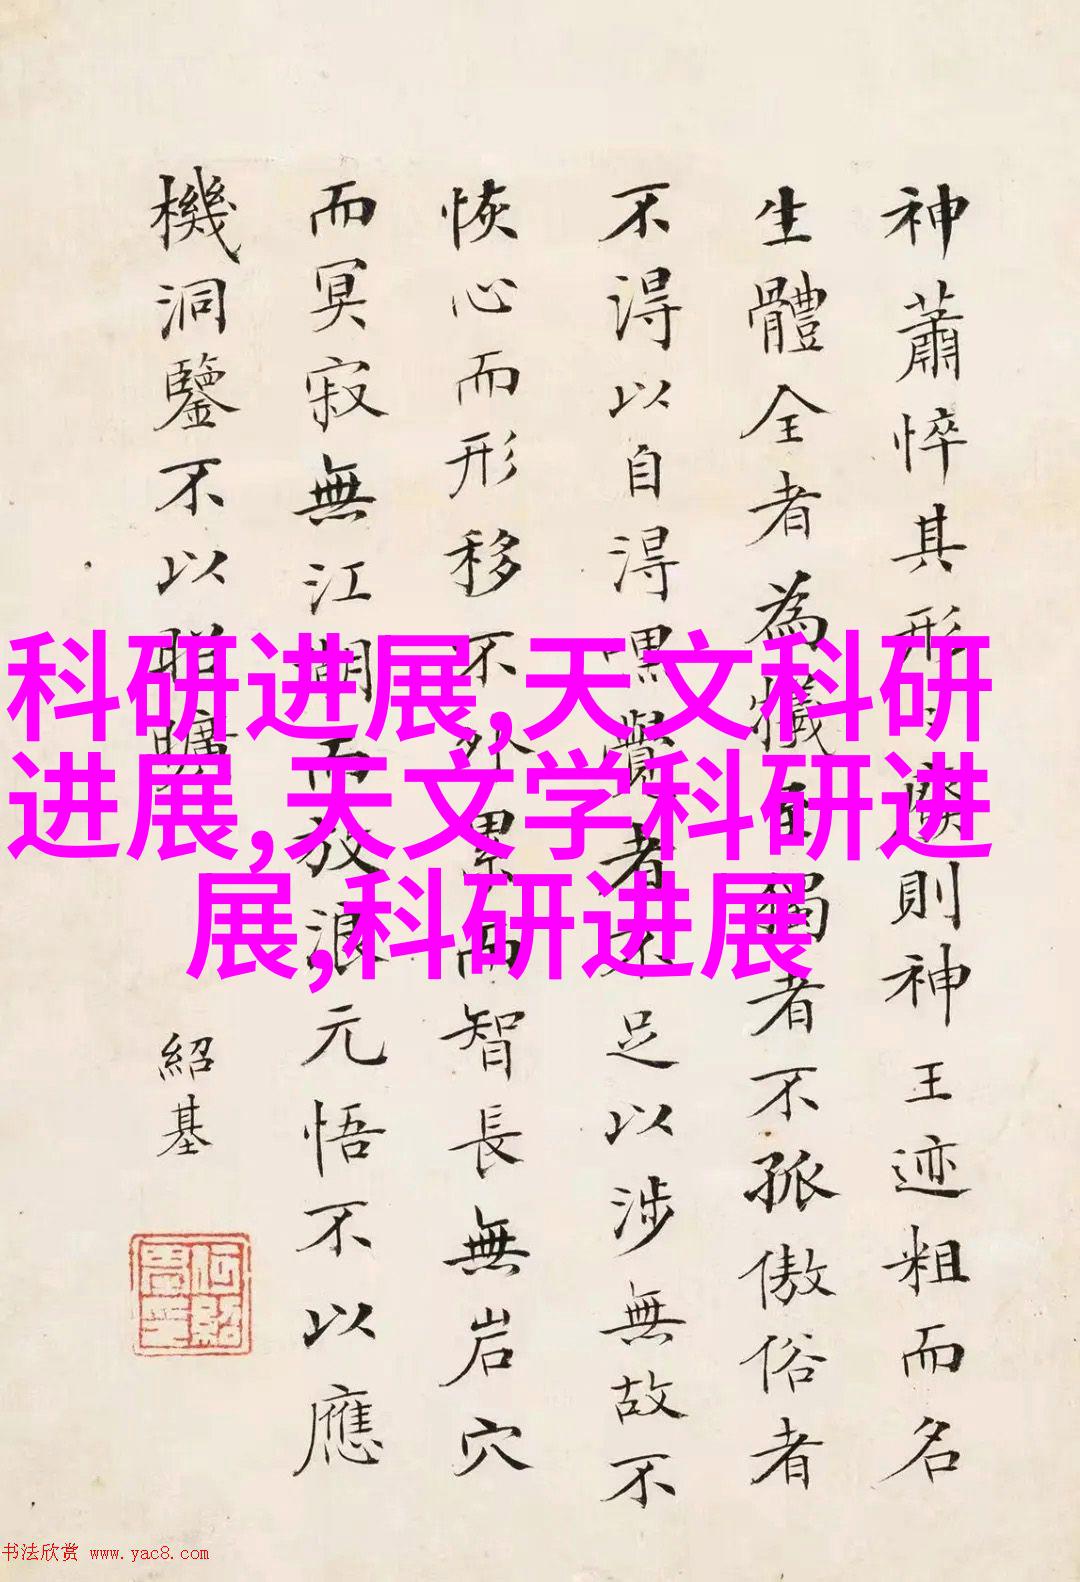 神蕭悴其形形癈則神王迹粗而名
生體全者為犧至獨者不孤傲俗者
不得以自得嘿覺者不足以涉無故不
恢心而形移不外累而智長無岩穴
而冥寂無江湖而放浪元悟不以應
機洞鑒不以昭曠
紹基
科研进展,天文科研
进展,天文学科研进
展,科研进展
书法欣赏 www.yac8.com